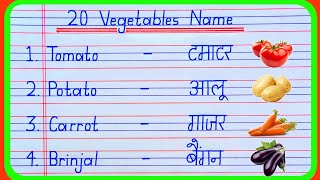 20 Vegetables Name
1. Tomato - टमाटर
2. Potato - आलू
3. Carrot - गाजर
4. Brinjal - बैंगन